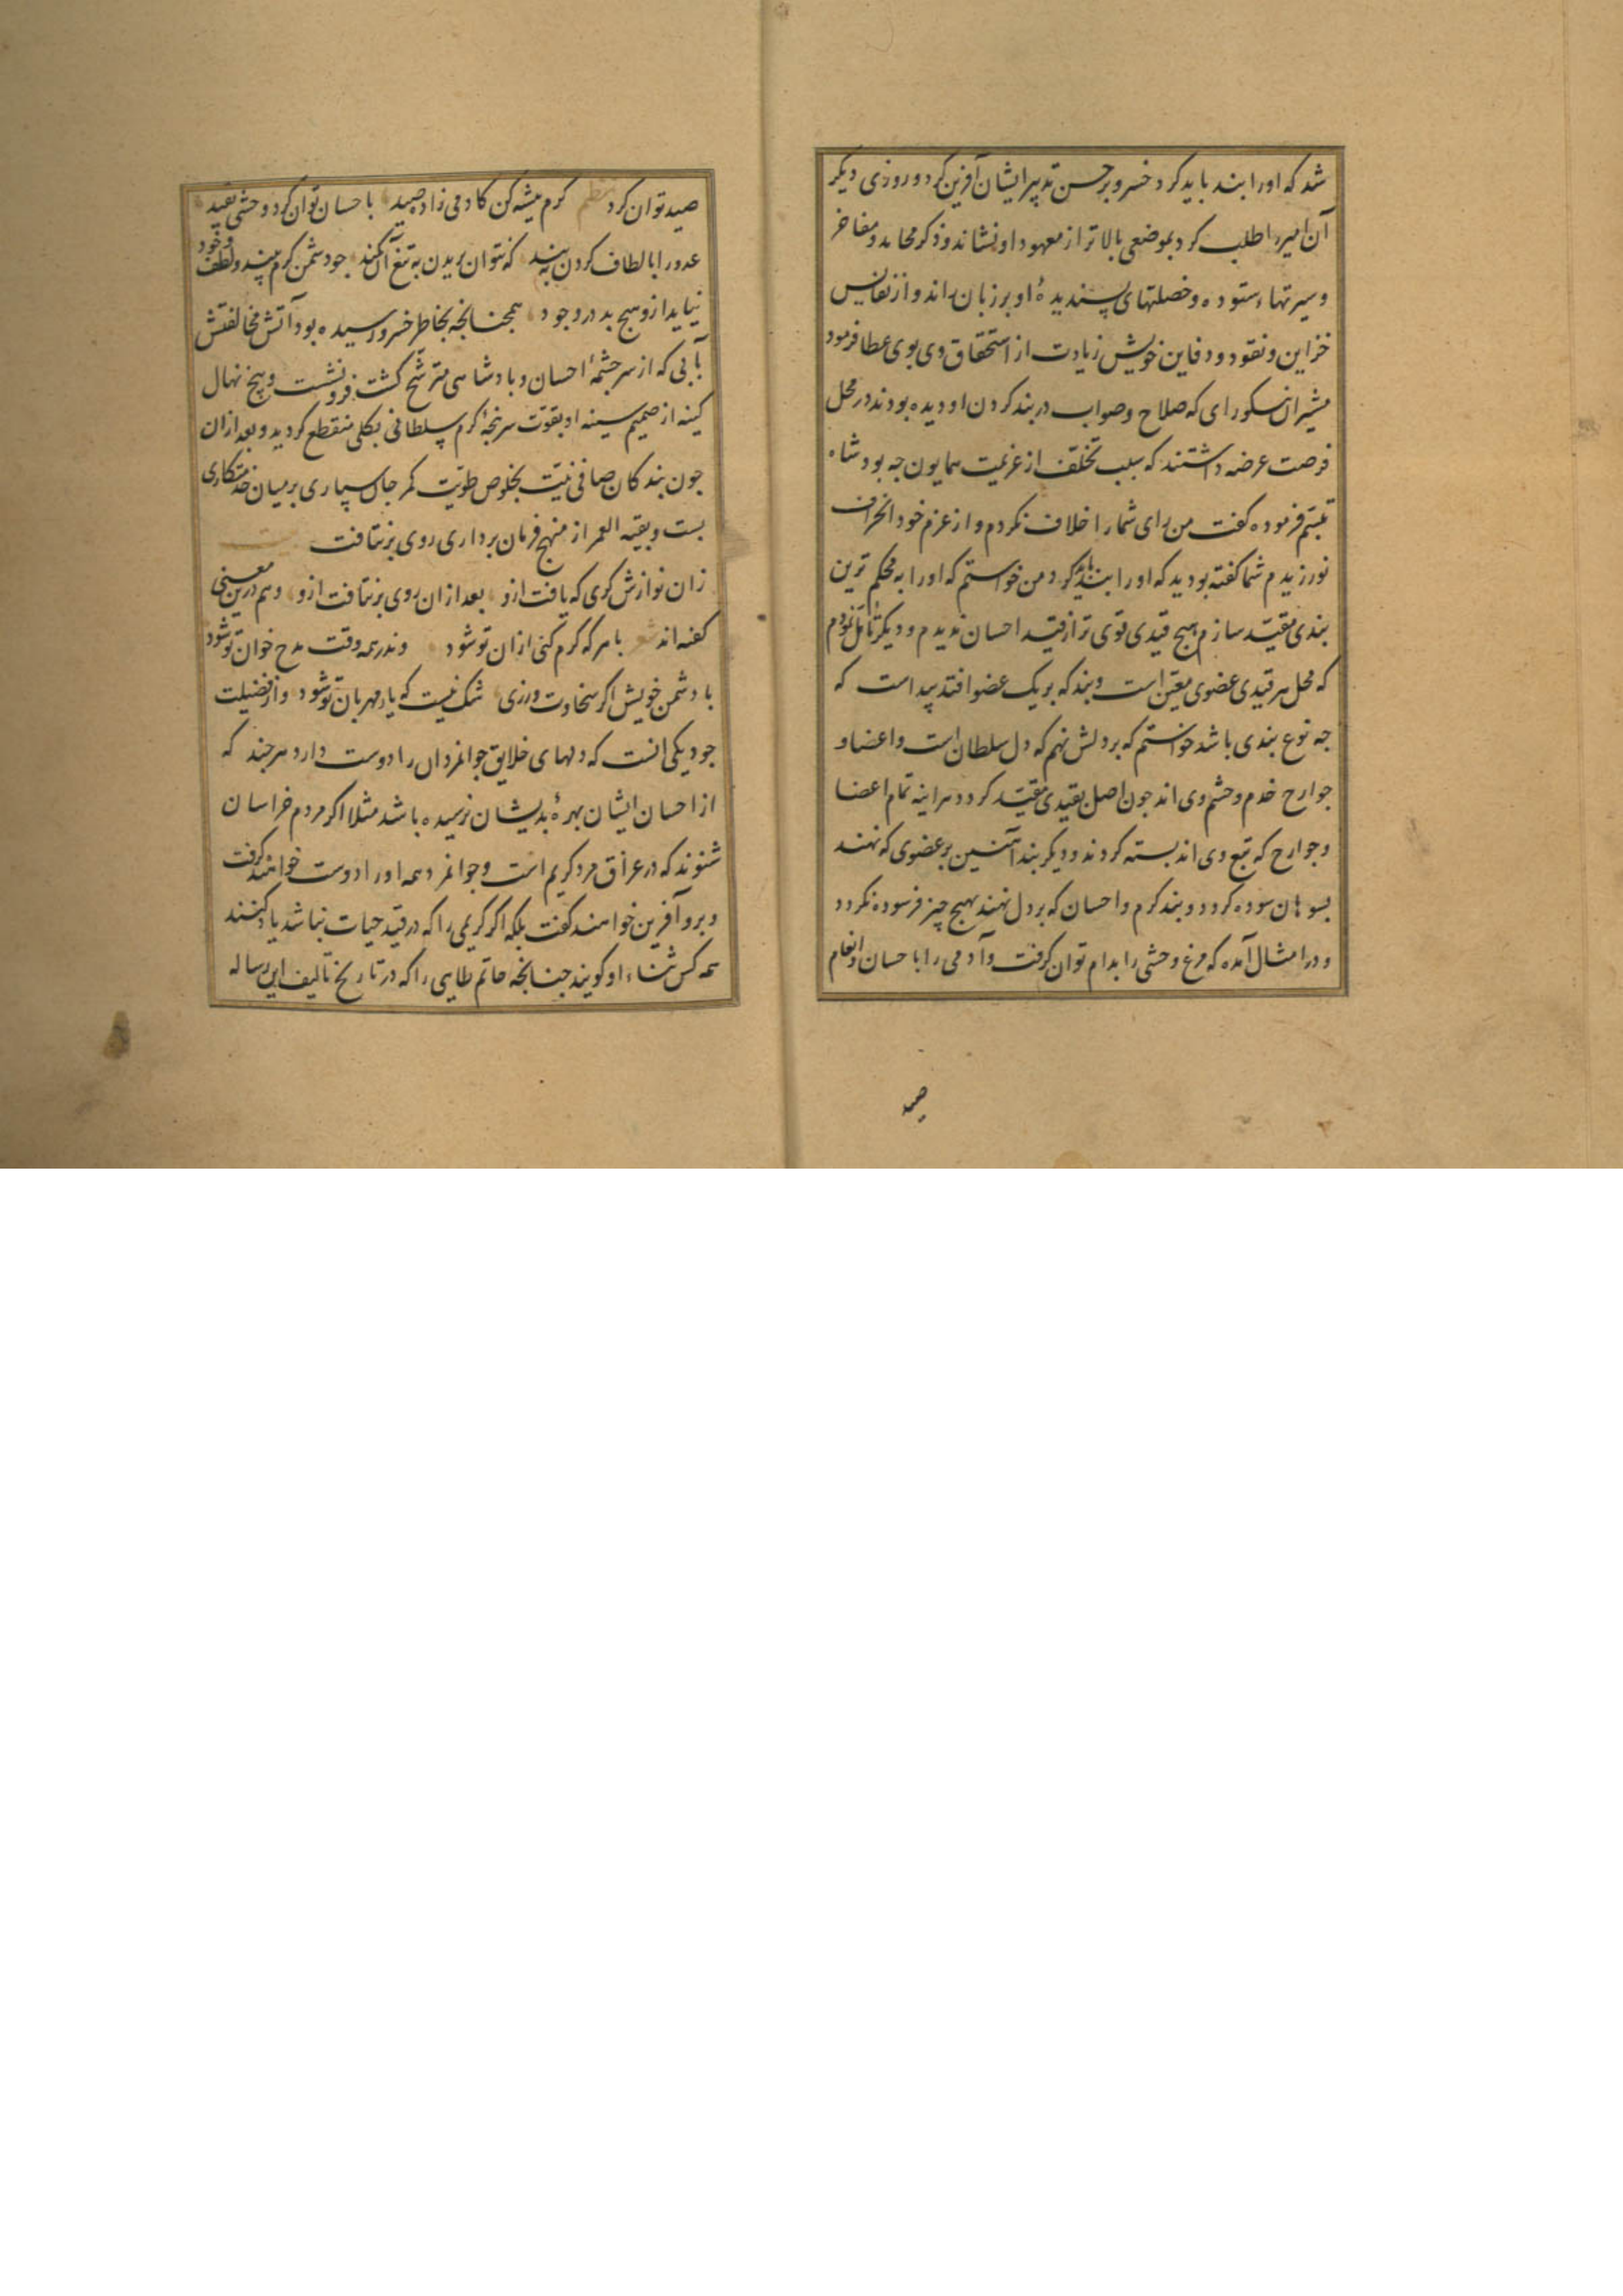 شد که او را بند باید کرد خسرو بر حسن تدبیر ایشان آفرین کرد و روزی دیکر
آن امیر را طلب کرد بموضعی بالاتر از معهود او نشاند و ذکر محامد و مفاخر
و سیرتهاء ستوده و خصلتهای پسندیدهٔ او بر زبان راند و از نفایس
خزاین و نقود و دفاین خویش زیادت از استحقاق وی بوی عطا فرمود
مشیران نیکورای که صلاح و صواب در بند کردن او دیده بودند در محل
فرصت عرضه داشتند که سبب تخلف از عزیمت همایون جه بود شاه
تبسم فرموده کفت من رای شما را خلاف نکردم و از عزم خود انحراف
نورزیدم شما کفته بودید که او را بند باید کرد من خواستم که او را به محکم ترین
بندی مقید سازم هیج قیدی قوی تر از قید احسان ندیدم و دیکر تامل نمودم
که محل هر قیدی عضوی معین است و بند که بر یک عضو افتد پیداست که
جه نوع بندی باشد خواستم که بر دلش نهم که دل سلطان است و اعضا و
جوارح خدم و حشم وی اند جون اصل بقیدی مقید کردد هراینه تمام اعضا
و جوارح که تبع وی اند بسته کردند و دیکر بند آهنین بر عضوی که نهند
بسوهان سوده کردد و بند کرم و احسان که بر دل نهند بهیج چیز فرسوده نکردد
و در امثال آمده که مرغ وحشی را بدام توان کرفت و آدمی را با حسان و انعام
صید
صید توان کرد نظم کرم پیشه کن کادمی زاده صید باحسان توان کرد و وحشی بقید
عدو را بالطاف کردن ببند که نتوان بریدن به تیغ آن کمند جو دشمن کرم بیند و لطف و جود
نیاید ازو هیج بد در وجود همجنانجه بخاطر خسرو رسیده بود آتش مخالفتش
بآبی که از سرجشمهٔ احسان و بادشاهی مترشح کشت فرو نشست و بیخ نهال
کینه از صمیم سینه او بقوت سرنجهٔ کرم سلطانی بکلی منقطع کردید و بعد ازان
جون بندکان صافی نیت بخلوص طویت کمر جان سپاری بر میان خدمتکاری
بست و بقیه العمر از منهج فرمان برداری روی برنتافت
زان نوازش کری که یافت ازو بعد ازان روی برنتافت ازو و هم درین معنی
کفته اند شعر با هر که کرم کنی ازان تو شود وندر همه وقت مدح خوان تو شود
با دشمن خویش اکر سخاوت ورزی شک نیست که یار مهربان تو شود و از فضیلت
جود یکی انست که دلهای خلایق جوانمردان را دوست دارد هرجند که
از احسان ایشان بهرهٔ بدیشان نرسیده باشد مثلا اکر مردم خراسان
شنوند که در عراق مرد کریم است و جوانمرد همه او را دوست خواهند کرفت
و برو آفرین خواهند کفت بلکه اکر کریمی را که در قید حیات نباشد یاد کنند
همه کس ثناء او کویند جنانجه حاتم طایی را که در تاریخ تالیف این رساله